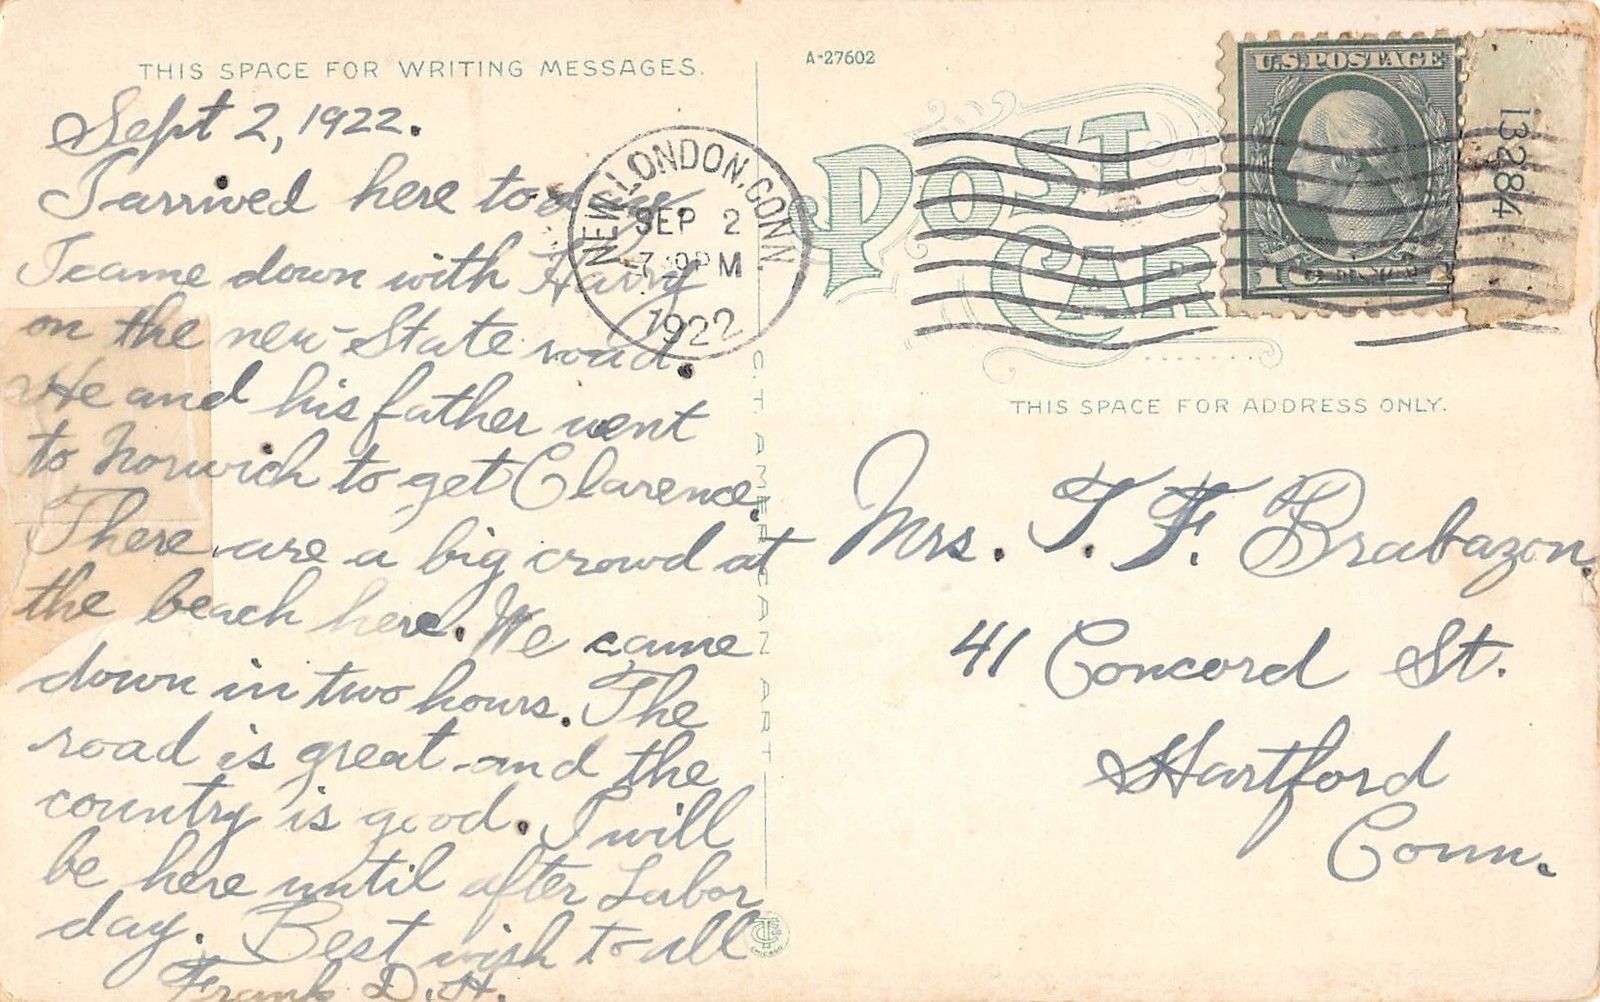 THIS SPACE FOR WRITING MESSAGES.
Sept 2, 1922.
I arrived here
I came down with Harry
on the new State road.
He and his father went
to Norwich to get Clarence.
There are a big crowd at
the beach here. We came
down in two hours. The
road is great and the
country is good. I will
be here until after Labor
day. Best wish to all
Frank D. H.
NEW LONDON, CONN.
SEP 2
PM
1922
C.T. AMERICAN ART
A-27602
POST
CARD
U.S. POSTAGE
1
13284
THIS SPACE FOR ADDRESS ONLY.
Mrs. T. F. Brabazon.
41 Concord St.
Hartford
Conn.